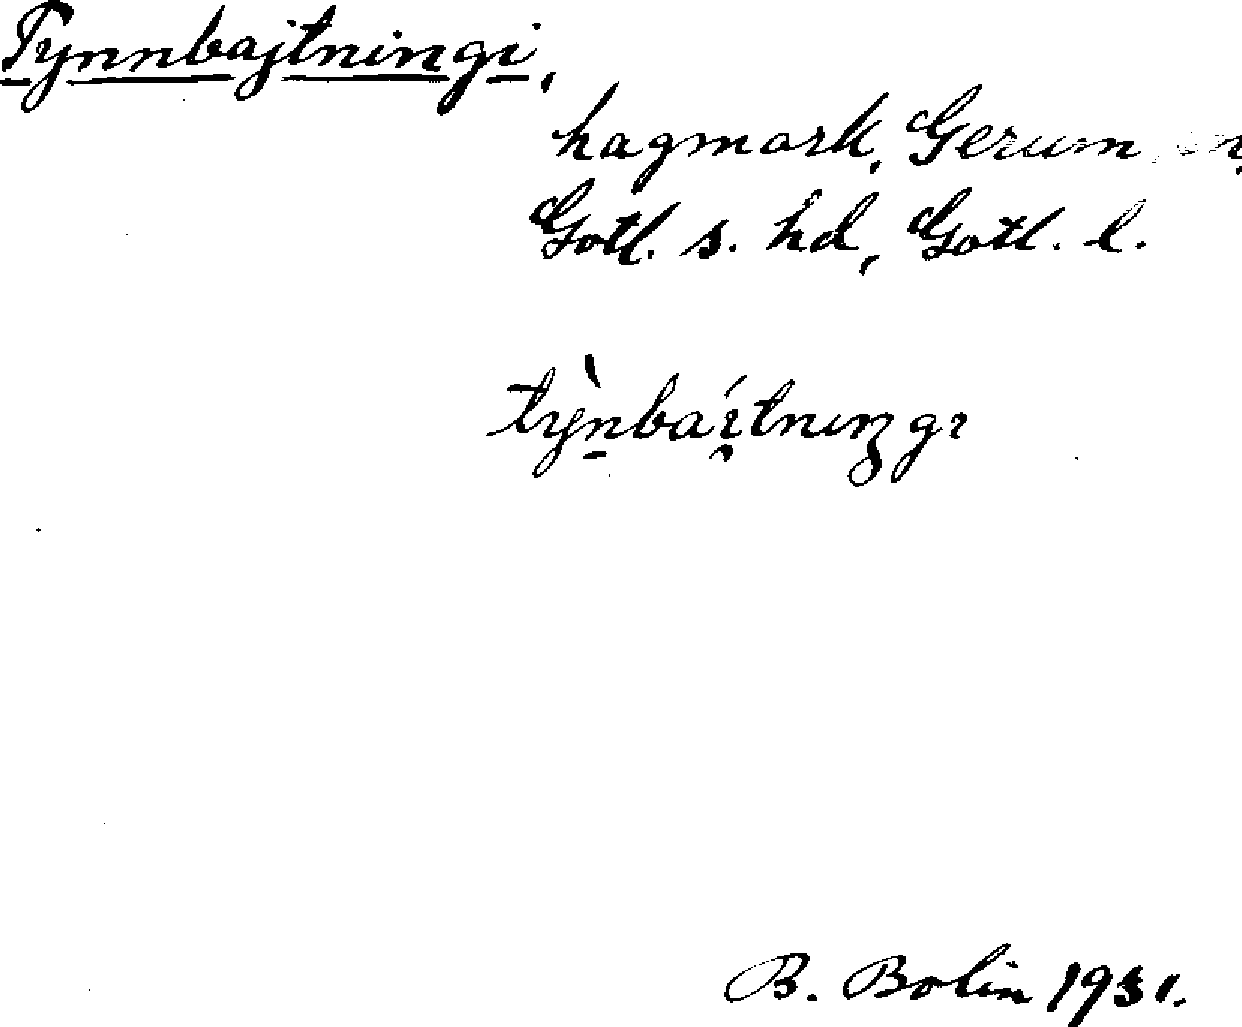 Tynnbajtningi,
hagmark, Gerum sn,
Gotl. s. hd, Gotl. l.
tỳnbaítnıŋgı
B. Bolin 1931.